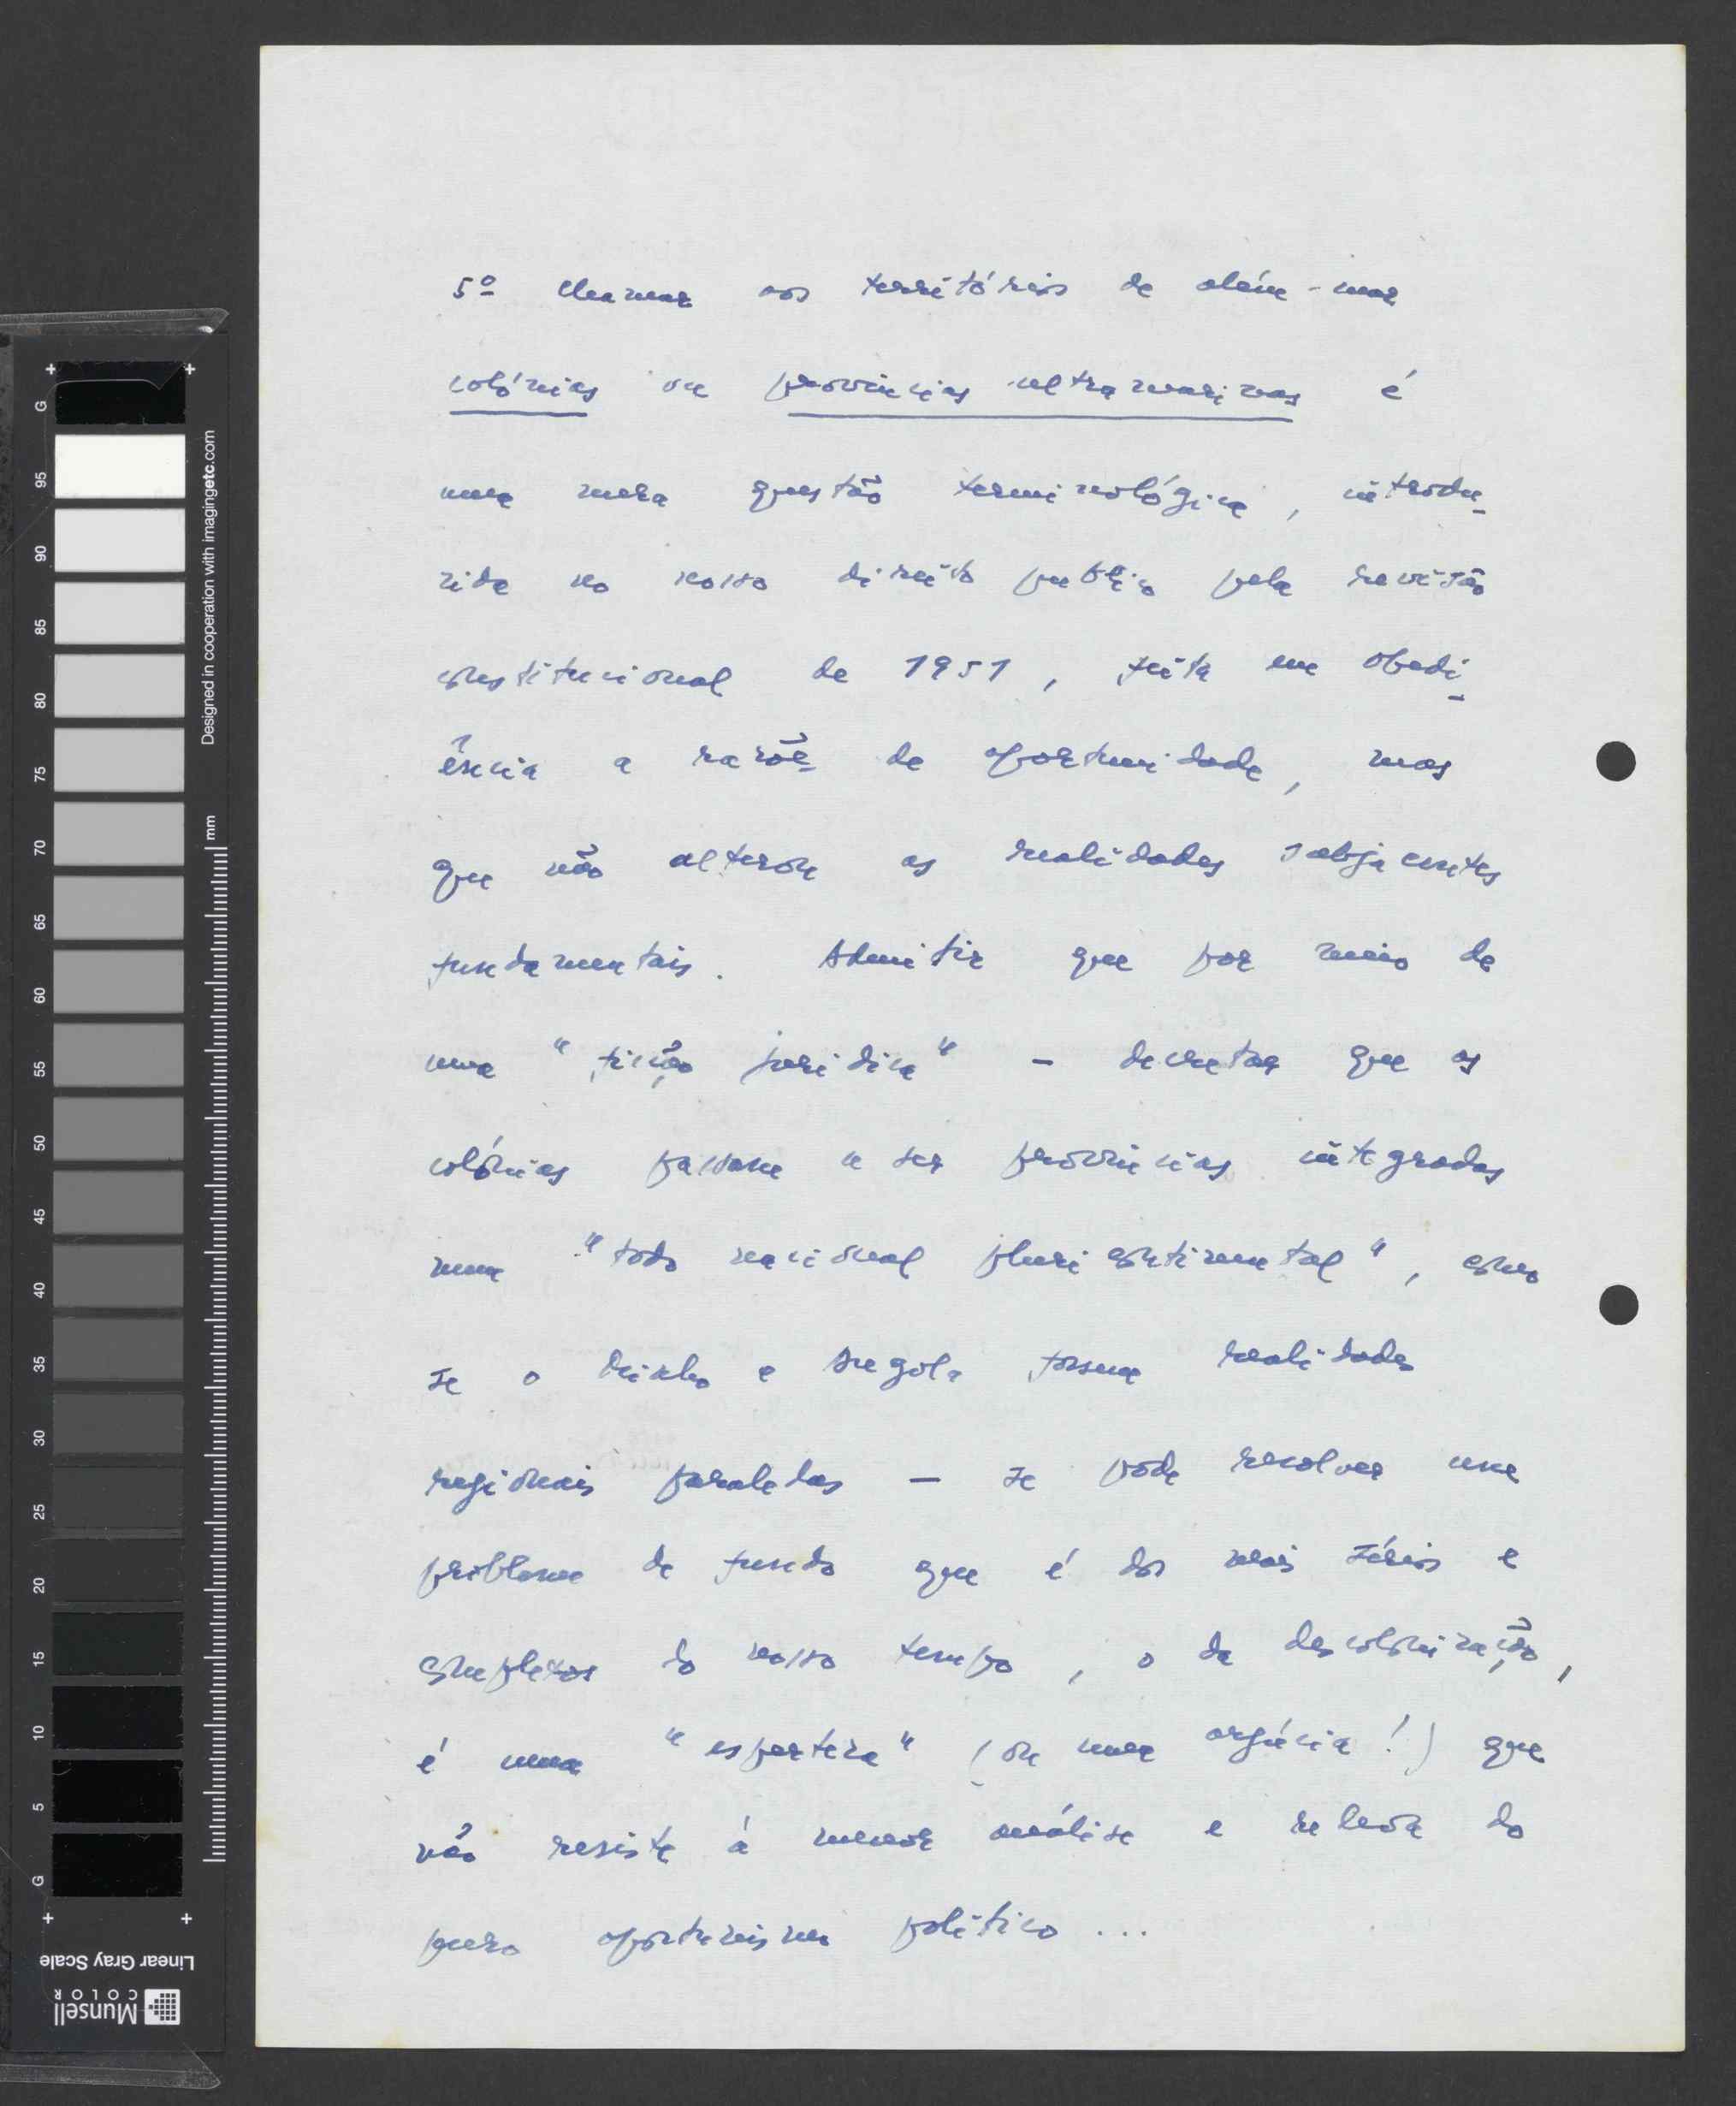 5º Chamar aos territórios de além-mar
colónias ou províncias ultramarinas é
uma mera questão terminológica, introdu-
zida no nosso direito público pela revisão
constitucional de 1951, feita em obedi-
ência a razões de oportunidade, mas
que não alterou as realidades subjacentes
fundamentais. Admitir que por meio de
uma "ficção jurídica" – decretar que as
colónias passam a ser províncias integradas
num "todo nacional pluricontinental", como
se o Minho e Angola fossem realidades
regionais paralelas – se pode resolver um
problema de fundo que é dos mais sérios e
complexos do nosso tempo, o da descolonização,
é uma "esperteza" (ou uma argúcia!) que
não resiste à menor análise e releva do
puro oportunismo político ...
G
95
90
85
80
75
70
65
60
55
50
45
40
35
30
25
20
15
10
5
G
mm
Designed in cooperation with imagingetc.com
Linear Gray Scale
Munsell
COLOR